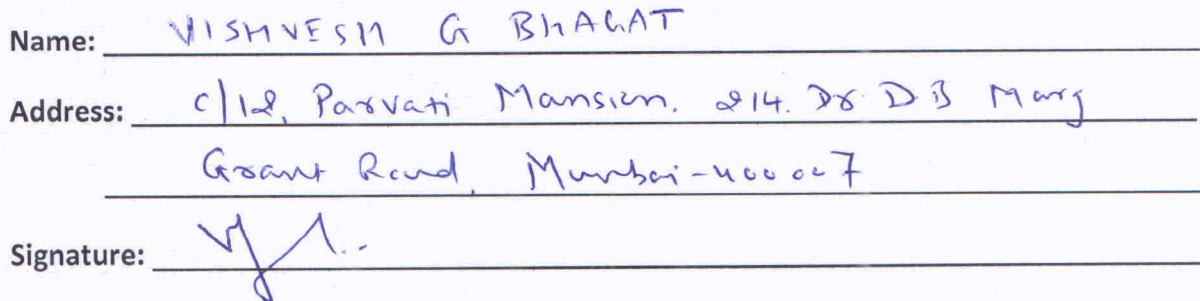 Name: VISHVESH G BHAGAT
Address: C/12, Parvati Mansion. 214. Dr D B Marg
Grant Road, Mumbai-400 007
Signature: